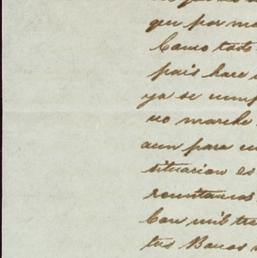 que por ma
Como todo
pais hace
ya se cump
no marche
aun para cu
situacion es
rountarnos
Con mil tre
tos Bancos